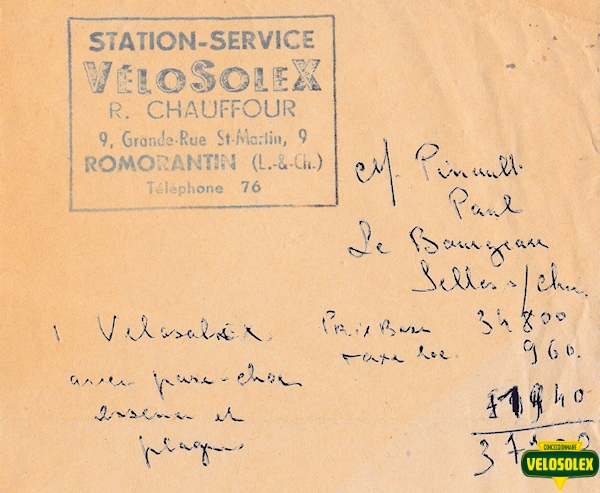 STATION-SERVICE
VÉLOSOLEX
R. CHAUFFOUR
9, Grande-Rue St-Martin, 9
ROMORANTIN (L.-&-Ch.)
Téléphone 76
M. Pinault
Paul
Le Bourgeau
Selles s/cher
1 Velosolex Prix Base 34800
avec pare-choc taxe loc 960.
essence et 1940
plaque 37
CONCESSIONNAIRE
VELOSOLEX